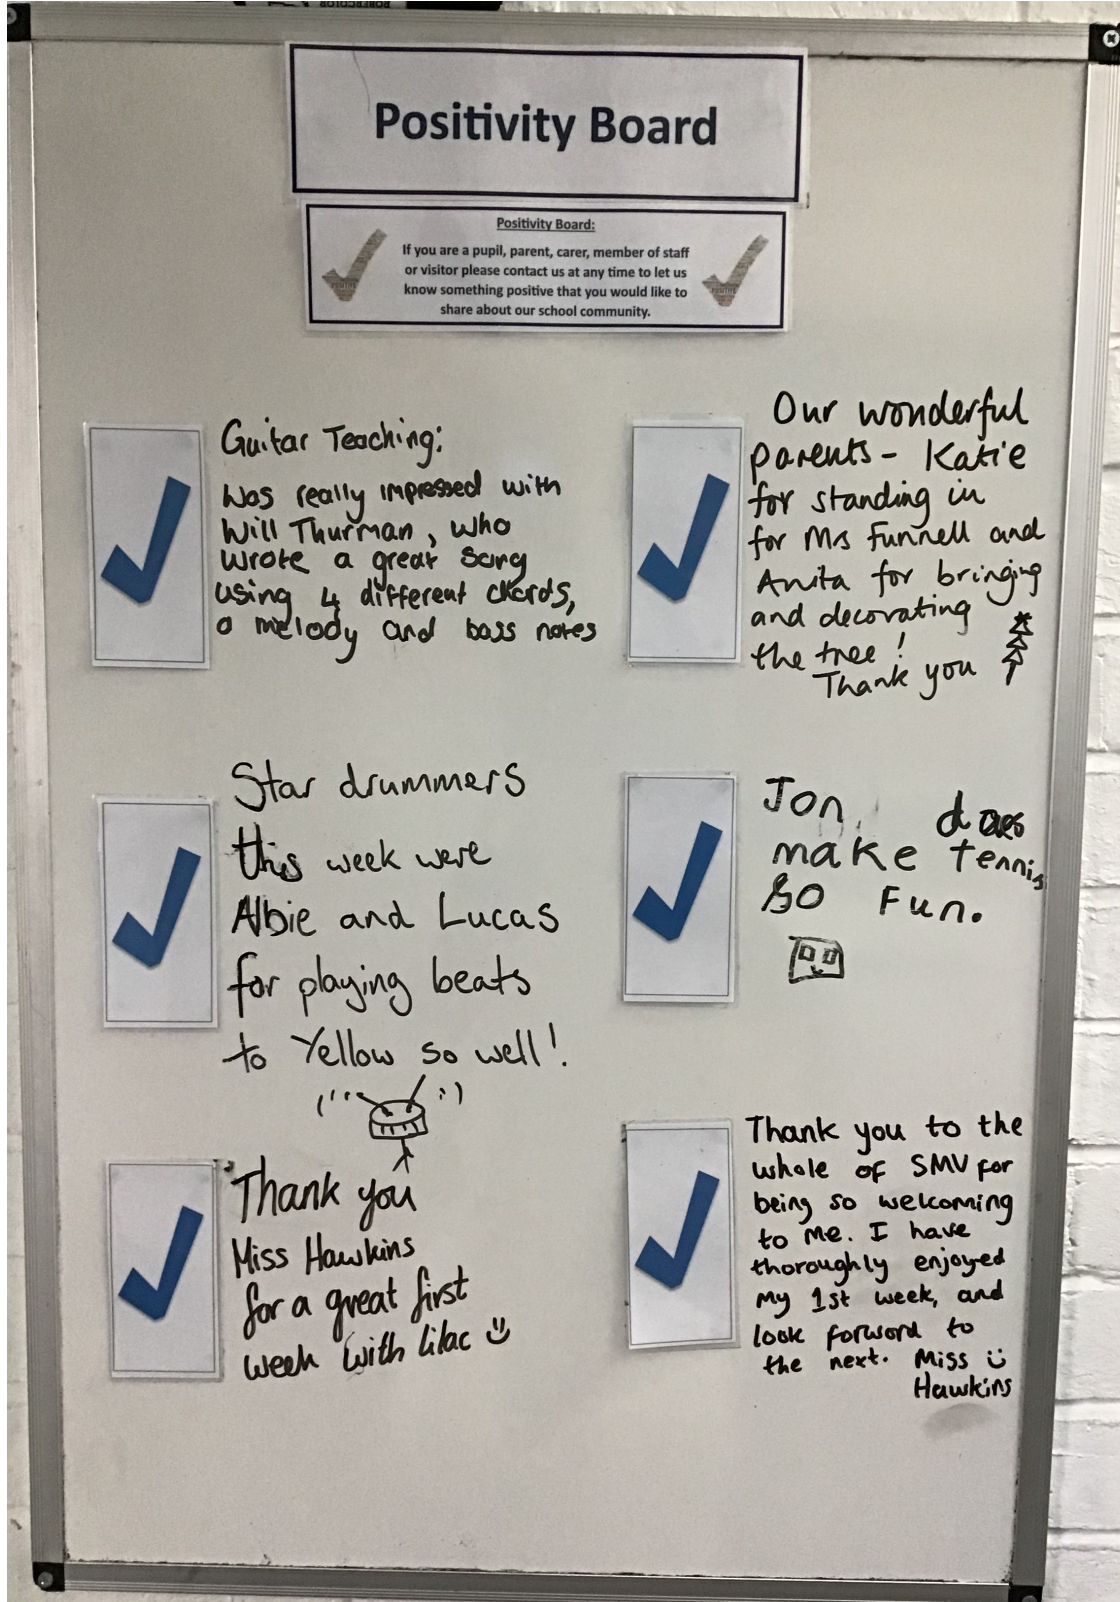 Positivity Board
Positivity Board:
If you are a pupil, parent, carer, member of staff
or visitor please contact us at any time to let us
know something positive that you would like to
share about our school community.
Guitar Teaching:
Was really impressed with
Will Thurman, who
wrote a great song
using 4 different chords,
a melody and bass notes
Our wonderful
parents - Katie
for standing in
for Mrs Funnell and
Anita for bringing
and decorating
the tree!
Thank you
Star drummers
this week were
Albie and Lucas
for playing beats
to Yellow so well!
Jon does
make tennis
so fun.
Thank you
Miss Hawkins
for a great first
week with lilac
Thank you to the
whole of SMV for
being so welcoming
to me. I have
thoroughly enjoyed
my 1st week, and
look forward to
the next. Miss
Hawkins